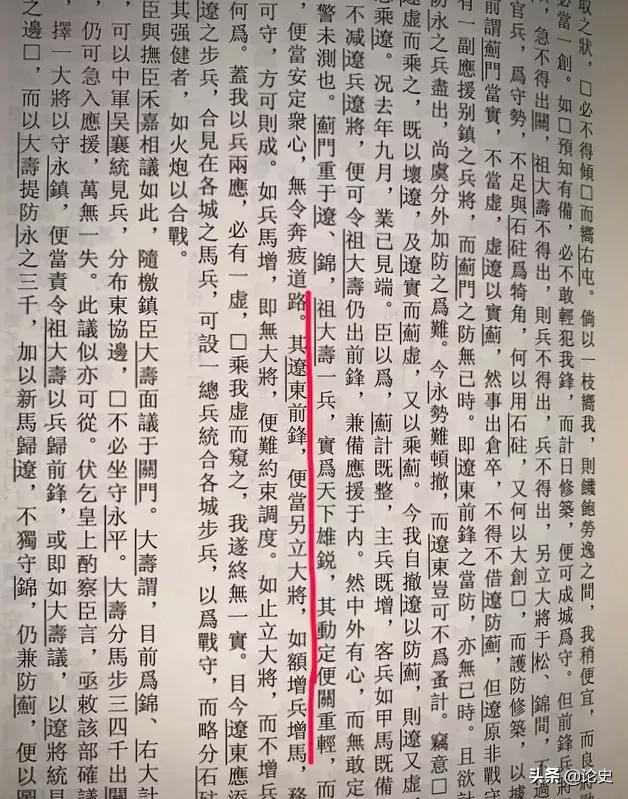 取之狀，□必不得傾□而嚮右屯。倘以一枝嚮我，則饑飽勞逸之間，我稍便宜，而良將
必當一創。如□預知有備，必不敢輕犯我鋒，而計日修築，便可成城爲守。但前鋒兵將
，急不得出關，祖大壽不得出，則兵不得出，兵不得出，另立大將于松、錦間，不過
官兵，爲守勢，不足與石砫爲犄角，何以用石砫，又何以大創□，而護防修築，以據
前謂薊門當實，不當虛，虛遼以實薊，然事出倉卒，不得不借遼防薊，但遼原非戰守
有一副應援別鎮之兵將，而薊門之防無已時。即遼東前鋒之當防，亦無已時。且欲計
防永之兵盡出，尚虞分外加防之爲難。今永勢難頓撤，而遼東豈可不爲蚤計。竊意□
遼虛而乘之，既以壞遼，及遼實而薊虛，又以乘薊。今我自撤遼以防薊，則遼又虛
忽乘遼。况去年九月，業已見端。臣以爲，薊計既整，主兵既增，客兵如甲馬既備
不減遼兵遼將，便可令祖大壽仍出前鋒，兼備應援于内。然中外有心，而無敢定
警未測也。薊門重于遼、錦，祖大壽一兵，實爲天下雄銳，其動定便關重輕，而
，便當安定衆心，無令奔疲道路。其遼東前鋒，便當另立大將，如額增兵增馬，務
可守，方可則成。如兵馬增，即無大將，便難約束調度。如止立大將，而不增兵
何爲。蓋我以兵兩應，必有一虛，□乘我虛而窺之，我遂終無一實。目今遼東應添
遼之步兵，合見在各城之馬兵，可設一總兵統合各城步兵，以爲戰守，而略分石砫
其强健者，如火炮以合戰。
臣與撫臣禾嘉相議如此，隨檄鎮臣大壽面議于關門。大壽謂，目前爲錦、右大計
，可以中軍吴襄統見兵，分布東協邊，□不必坐守永平。大壽分馬步三四千出關
仍可急入應援，萬無一失。此議似亦可從。伏乞皇上酌察臣言，亟敕該部確議
擇一大將以守永鎮，便當責令祖大壽以兵歸前鋒，或即如大壽議，以遼將統見
之邊□，而以大壽提防永之三千，加以新馬歸遼，不獨守錦，仍兼防薊，便以圖
头条 @论史